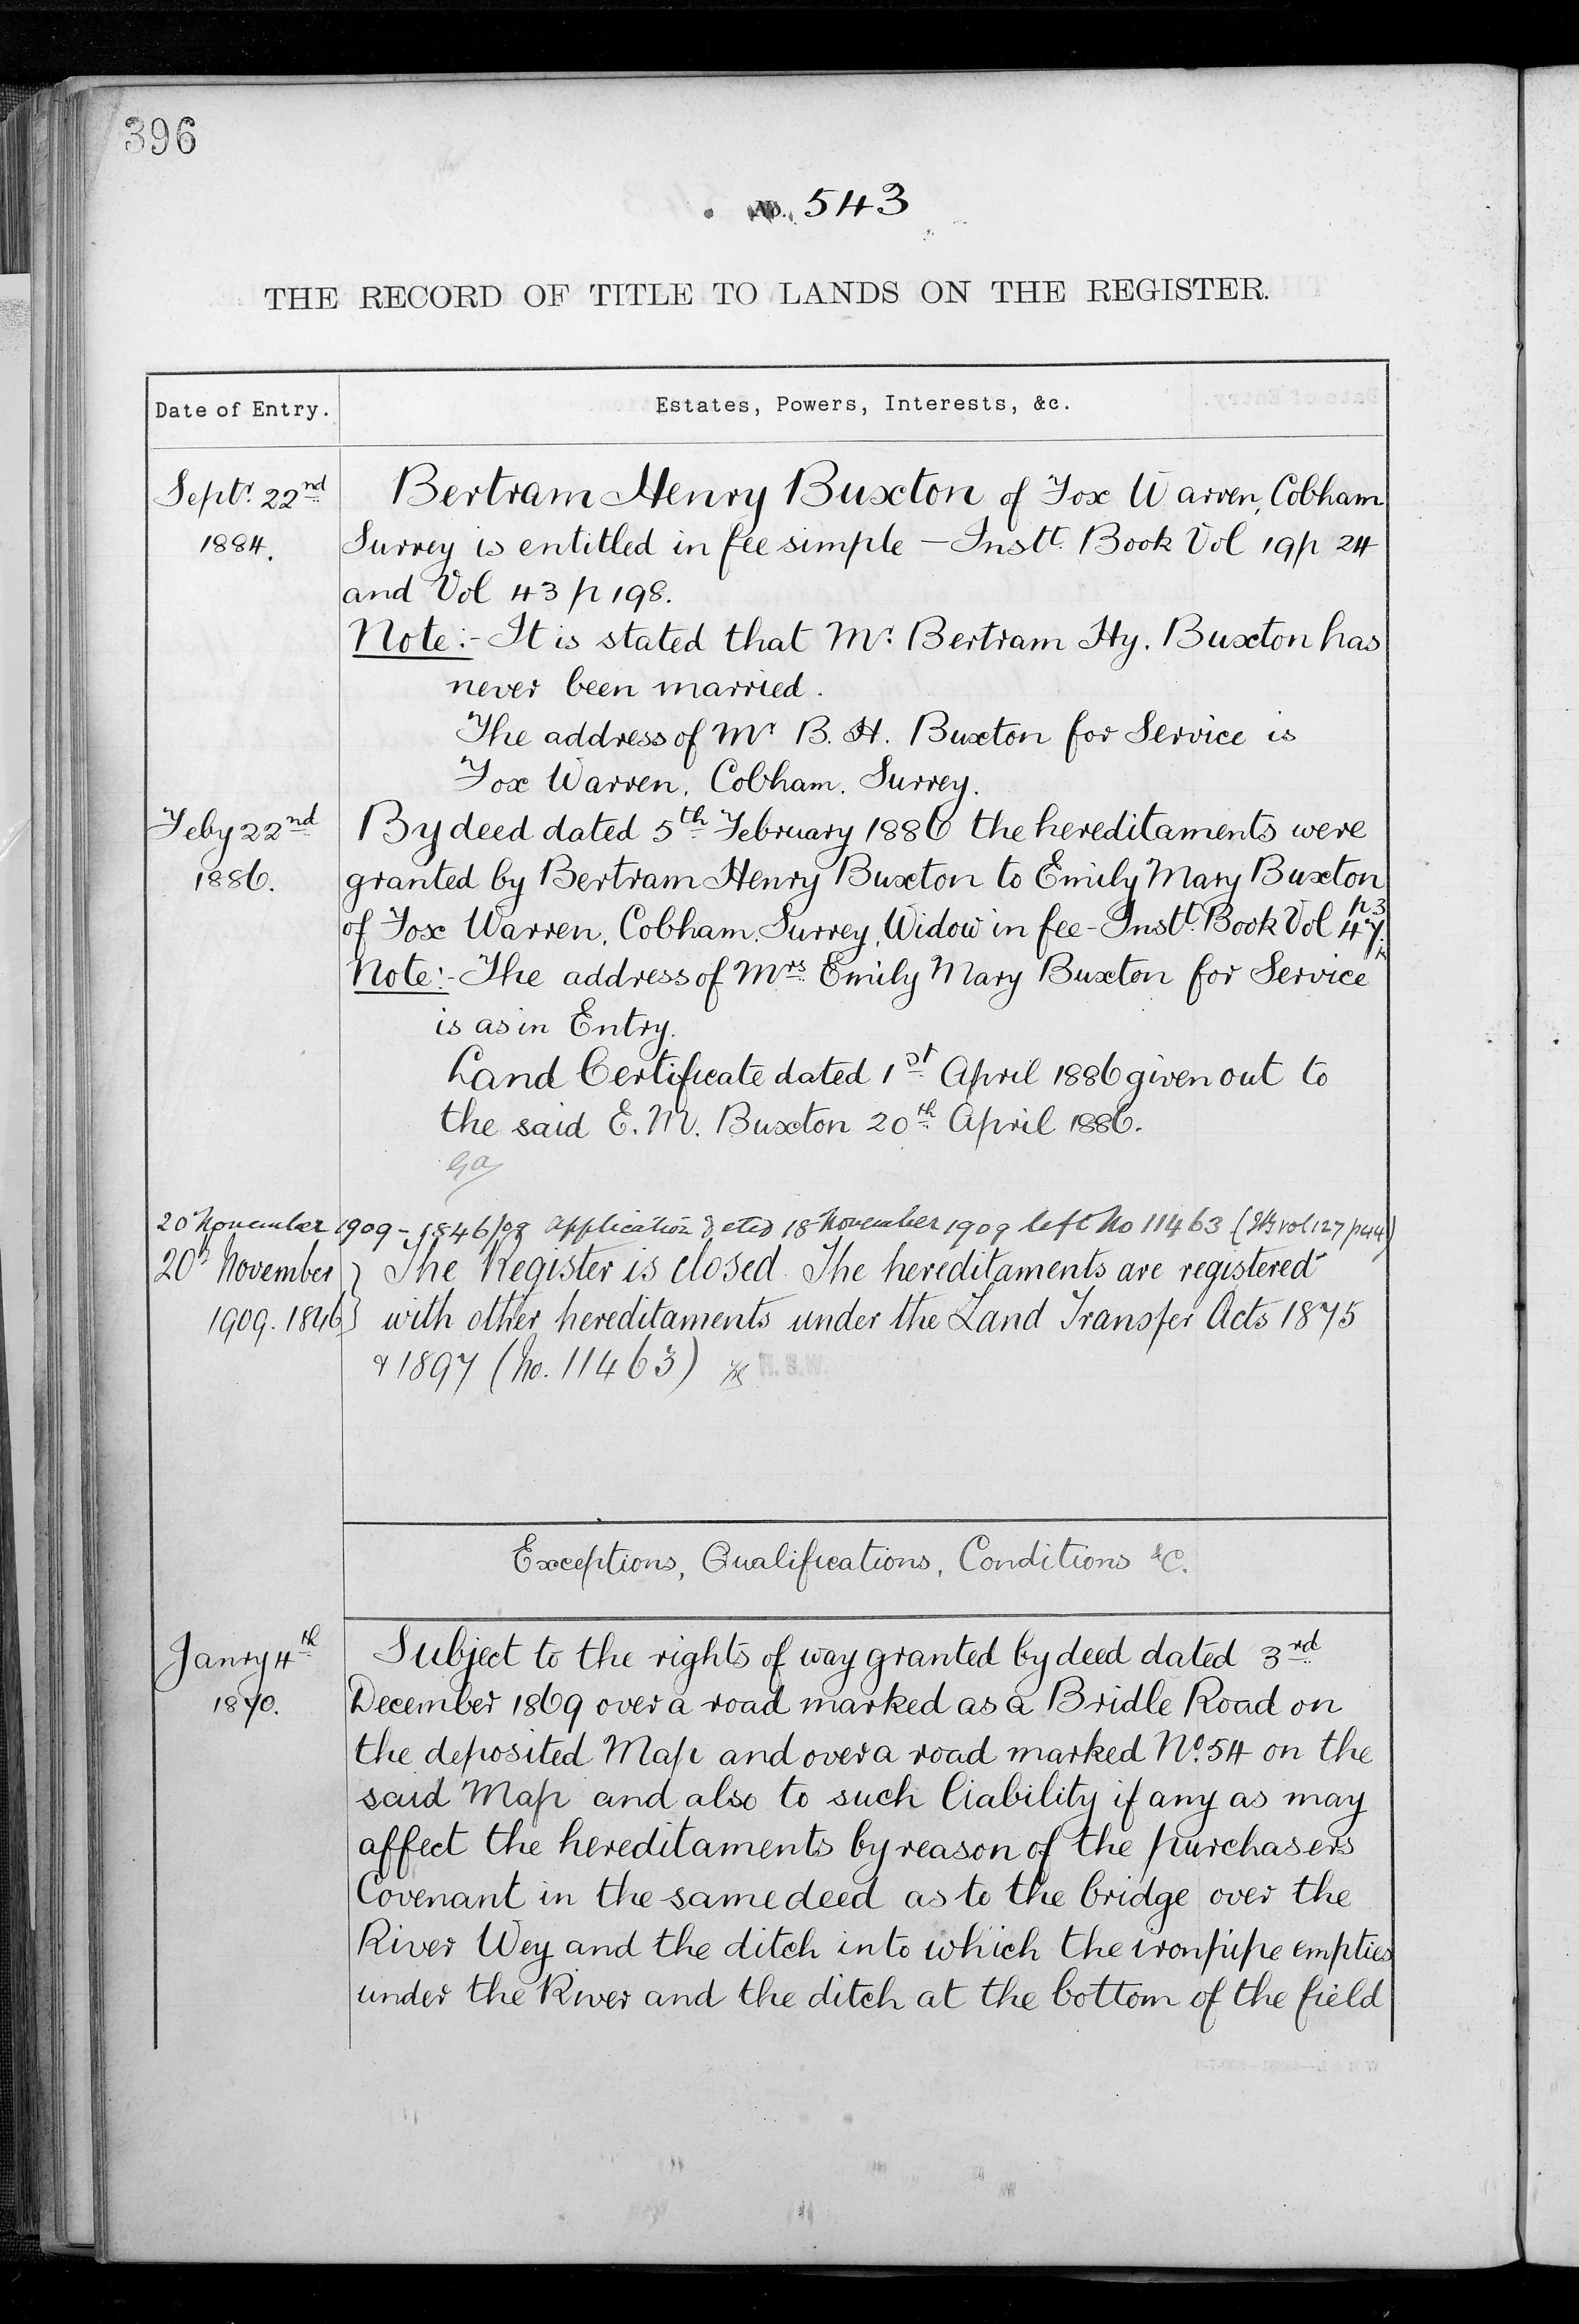 396
No. 543
THE RECORD OF TITLE TO LANDS ON THE REGISTER.
Date of Entry.
Estates, Powers, Interests, &c.
Septr. 22nd
1884.
Bertram Henry Buxton of Fox Warren, Cobham
Surrey is entitled in fee simple – Instt. Book Vol 19 p 24
and Vol 43 p 198.
Note:- It is stated that Mr. Bertram Hy. Buxton has
never been married.
The address of Mr B. H. Buxton for Service is
Fox Warren, Cobham. Surrey.
Feby 22nd
1886.
By deed dated 5th February 1886 the hereditaments were
granted by Bertram Henry Buxton to Emily Mary Buxton
of Fox Warren, Cobham, Surrey, Widow in fee - Instt. Book Vol 47 p 3
Note:- The address of Mrs. Emily Mary Buxton for Service
is as in Entry.
Land Certificate dated 1st April 1886 given out to
the said E. M. Buxton 20th April 1886.
20 November 1909 - 1846/09 application dated 18 November 1909 left No 11463 (vol 127
20th November
1909. 1846
The Register is closed. The hereditaments are registered
with other hereditaments under the Land Transfer Acts 1875
& 1897 (No. 11463)
Exceptions, Qualifications, Conditions &c.
Janry 4th
1870.
Subject to the rights of way granted by deed dated 3rd
December 1869 over a road marked as a Bridle Road on
the deposited Map and over a road marked No. 54 on the
said Map and also to such liability if any as may
affect the hereditaments by reason of the purchasers
Covenant in the same deed as to the bridge over the
River Wey and the ditch into which the iron pipe empties
under the River and the ditch at the bottom of the field